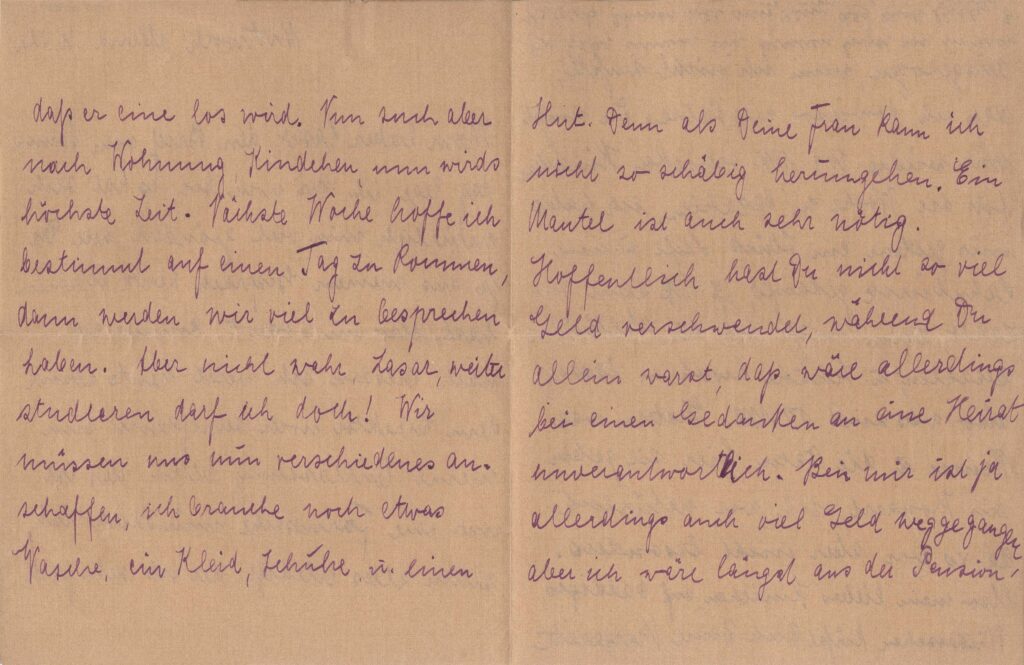 daß er eine los wird. Nun such aber
nach Wohnung, Kindchen nun wirds
höchste Zeit. Nächste Woche hoffe ich
bestimmt auf einen Tag zu kommen,
dann werden wir viel zu besprechen
haben. Aber nicht wahr, Lasar, weiter
studieren darf ich doch! Wir
müssen uns nun verschiedenes an-
schaffen, ich brauche noch etwas
Wäsche, ein Kleid, Schuhe u. einen
Hut. Denn als Deine Frau kann ich
nicht so schäbig herumgehen. Ein
Mantel ist auch sehr nötig.
Hoffentlich hast Du nicht so viel
Geld verschwendet, während Du
allein warst, daß wäre allerdings
bei einen Gedanken an eine Heirat
unverantwortlich. Bei mir ist ja
allerdings auch viel Geld weggegangen
aber ich wäre längst aus der Pension,